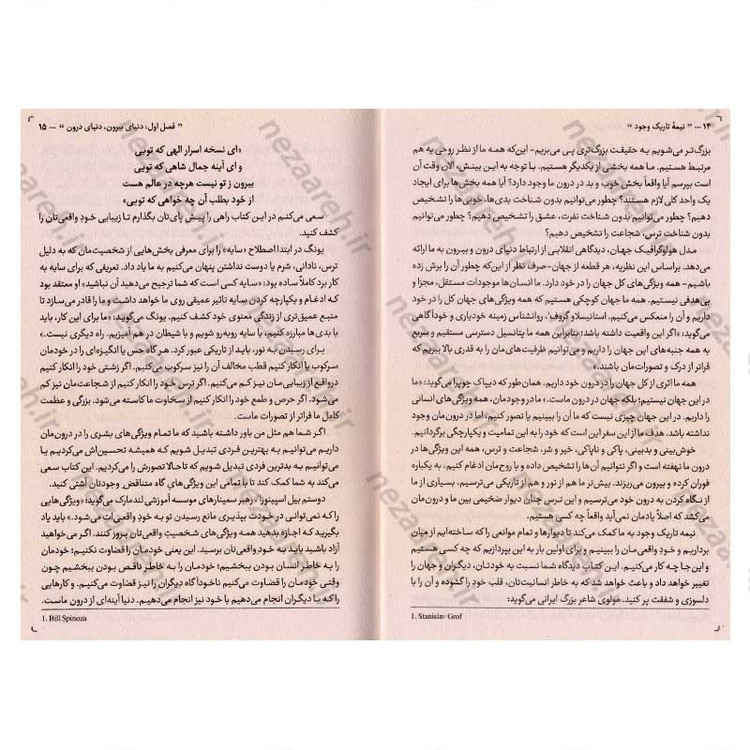 ۱۴ ... " نیمهٔ تاریک وجود "
بزرگ‌تر می‌شویم به حقیقت بزرگ‌تری پی می‌بریم- این‌که همه ما از نظر روحی به هم
مرتبط هستیم. ما همه بخشی از یکدیگر هستیم. با توجه به این بینش، الان وقت آن
است بپرسم آیا واقعاً بخش خوب و بد در درون ما وجود دارد؟ آیا همه بخش‌ها برای ایجاد
یک واحد کلی لازم هستند؟ چطور می‌توانیم بدون شناخت بدی‌ها، خوبی‌ها را تشخیص
دهیم؟ چطور می‌توانیم بدون شناخت نفرت، عشق را تشخیص دهیم؟ چطور می‌توانیم
بدون شناخت ترس، شجاعت را تشخیص دهیم؟
مدل هولوگرافیک جهان، دیدگاهی انقلابی از ارتباط دنیای درون و بیرون به ما ارائه
می‌دهد. براساس این نظریه، هر قطعه از جهان- صرف نظر از این‌که چطور آن را برش زده
باشیم- همه ویژگی‌های کل جهان را در خود دارد. ما انسان‌ها موجودات مستقل، مجزا و
بی‌هدفی نیستیم. همه ما جهان کوچکی هستیم که همه ویژگی‌های جهان کل را در خود
داریم و آن را منعکس می‌کنیم. استانیسلاو گروف¹، روانشناس زمینه خودیاری و خودآگاهی
می‌گوید: «اگر این واقعیت داشته باشد؛ بنابراین همه ما پتانسیل دسترسی مستقیم و سریع
به همه جنبه‌های این جهان را داریم و می‌توانیم ظرفیت‌های‌مان را به قدری بالا ببریم که
فراتر از درک و تصورات‌مان باشند.»
همه ما اثری از کل جهان را در درون خود داریم. همان‌طور که دیپاک چوپرا می‌گوید: «ما
در این جهان نیستیم؛ بلکه جهان در درون ماست.» ما در وجودمان، همه ویژگی‌های انسانی
را داریم. در این جهان چیزی نیست که ما آن را ببینیم یا تصور کنیم، اما در درون‌مان وجود
نداشته باشد. هدف ما از این سفر این است که خود را به این تمامیت و یکپارچگی برگردانیم.
خوش‌بینی و بدبینی، پاکی و ناپاکی، خیر و شر، شجاعت و ترس، همه این ویژگی‌ها در
درون ما نهفته است و اگر نتوانیم آن‌ها را تشخیص داده و با روح‌مان ادغام کنیم، به یکباره
فوران کرده و بیرون می‌ریزند. بیش‌تر ما هم از نور و هم از تاریکی می‌ترسیم. بسیاری از ما
از نگاه کردن به درون خود می‌ترسیم و این ترس چنان دیوار ضخیمی بین ما و درون‌مان
می‌کشد که اصلاً یادمان نمی‌آید واقعاً چه کسی هستیم.
نیمه تاریک وجود به ما کمک می‌کند تا دیوارها و تمام موانعی را که ساخته‌ایم از میان
برداریم و خودِ واقعی‌مان را ببینیم و برای اولین بار به این بپردازیم که چه کسی هستیم
و این جا چه کار می‌کنیم. این کتاب دیدگاه شما نسبت به خودتان، دیگران و جهان را
تغییر خواهد داد و باعث خواهد شد که به خاطر انسانیت‌تان، قلب خود را گشوده و آن را با
دلسوزی و شفقت پر کنید. مولوی شاعر بزرگ ایرانی می‌گوید:
1. Stanislav Grof
" فصل اول: دنیای بیرون، دنیای درون " ... ۱۵
«ای نسخه اسرار الهی که تویی
و ای آینه جمال شاهی که تویی
بیرون ز تو نیست هرچه در عالم هست
از خود بطلب آن چه خواهی که تویی»
سعی می‌کنم در این کتاب راهی را پیش پای‌تان بگذارم تا زیبایی خودِ واقعی‌تان را
کشف کنید.
یونگ در ابتدا اصطلاح «سایه» را برای معرفی بخش‌هایی از شخصیت‌مان که به دلیل
ترس، نادانی، شرم یا دوست نداشتن پنهان می‌کنیم به ما یاد داد. تعریفی که برای سایه به
کار برد کاملاً ساده بود: «سایه کسی است که شما ترجیح می‌دهید آن نباشید» او معتقد بود
که ادغام و یکپارچه کردن سایه تاثیر عمیقی روی ما خواهد داشت و ما را قادر می‌سازد تا
منبع عمیق‌تری از زندگی معنوی خود کشف کنیم. یونگ می‌گوید: «ما برای این کار، باید
با بدی‌ها مبارزه کنیم، با سایه روبه‌رو شویم و با شیطان در هم آمیزیم. راه دیگری نیست.»
برای رسیدن به نور، باید از تاریکی عبور کرد. هر گاه حس یا انگیزه‌ای را در خودمان
سرکوب یا انکار کنیم قطب مخالف آن را نیز سرکوب می‌کنیم. اگر زشتی خود را انکار کنیم
در واقع از زیبایی‌مان نیز کم می‌کنیم. اگر ترس خود را انکار کنیم از شجاعت‌مان نیز کم
می‌شود. اگر حرص و طمع خود را انکار کنیم از سخاوت ما کاسته می‌شود. بزرگی و عظمت
کامل ما فراتر از تصورات ماست.
اگر شما هم مثل من باور داشته باشید که ما تمام ویژگی‌های بشری را در درون‌مان
داریم می‌توانیم به بهترین فردی تبدیل شویم که همیشه تحسین‌اش می‌کردیم یا
می‌توانیم به بدترین فردی تبدیل شویم که تا حالا تصورش را می‌کردیم. این کتاب سعی
می‌کند به شما کمک کند تا با تمامی این ویژگی‌های گاه متناقض وجودتان آشتی کنید.
دوستم بیل اسپینوزا¹، رهبر سمینارهای موسسه آموزشی لندمارک می‌گوید: «ویژگی‌هایی
را که نمی‌توانی در خودت بپذیری مانع رسیدن تو به خودِ واقعی‌ات می‌شود.» باید یاد
بگیرید که اجازه بدهید همه ویژگی‌های شخصیتِ واقعی‌تان بروز کنند. اگر می‌خواهید
آزاد باشید باید به خودِ واقعی‌تان برسید. این یعنی خودمان را قضاوت نکنیم؛ خودمان
را به خاطر انسان بودن ببخشیم؛ خودمان را به خاطر ناقص بودن ببخشیم چون
وقتی خودمان را قضاوت می‌کنیم ناخودآگاه دیگران را نیز قضاوت می‌کنیم. و کارهایی
را که با دیگران انجام می‌دهیم با خود نیز انجام می‌دهیم. دنیا آینه‌ای از درون ماست.
1. Bill Spinoza
nezaareh.ir